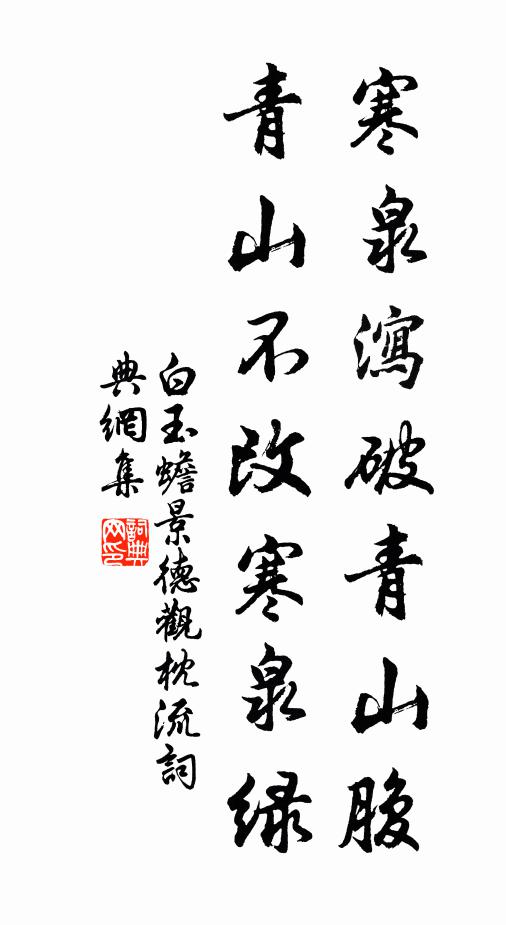 寒泉瀉破青山腹
青山不改寒泉绿
白玉蟾景德觀枕流詞
典網集
詞典网印